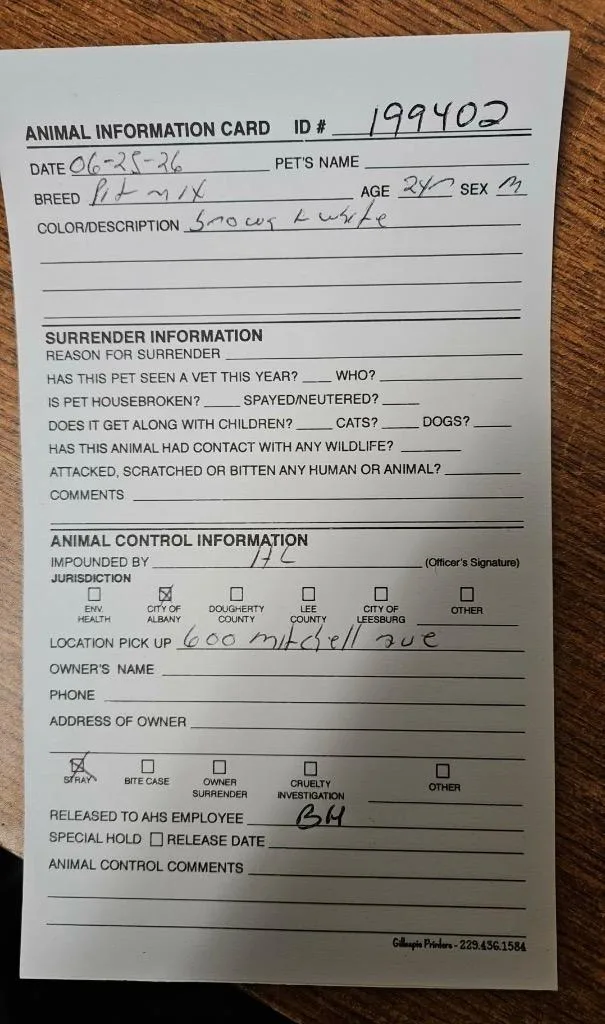 ANIMAL INFORMATION CARD ID # 199402
DATE 06-25-26 PET'S NAME
BREED Pit mix AGE 2yr SEX M
COLOR/DESCRIPTION brown & white
SURRENDER INFORMATION
REASON FOR SURRENDER
HAS THIS PET SEEN A VET THIS YEAR? WHO?
IS PET HOUSEBROKEN? SPAYED/NEUTERED?
DOES IT GET ALONG WITH CHILDREN? CATS? DOGS?
HAS THIS ANIMAL HAD CONTACT WITH ANY WILDLIFE?
ATTACKED, SCRATCHED OR BITTEN ANY HUMAN OR ANIMAL?
COMMENTS
ANIMAL CONTROL INFORMATION
IMPOUNDED BY AC (Officer's Signature)
JURISDICTION
ENV. HEALTH CITY OF ALBANY DOUGHERTY COUNTY LEE COUNTY CITY OF LEESBURG OTHER
LOCATION PICK UP 600 mitchell ave
OWNER'S NAME
PHONE
ADDRESS OF OWNER
STRAY BITE CASE OWNER SURRENDER CRUELTY INVESTIGATION OTHER
RELEASED TO AHS EMPLOYEE BH
SPECIAL HOLD RELEASE DATE
ANIMAL CONTROL COMMENTS
Gillespie Printers - 229.436.1584